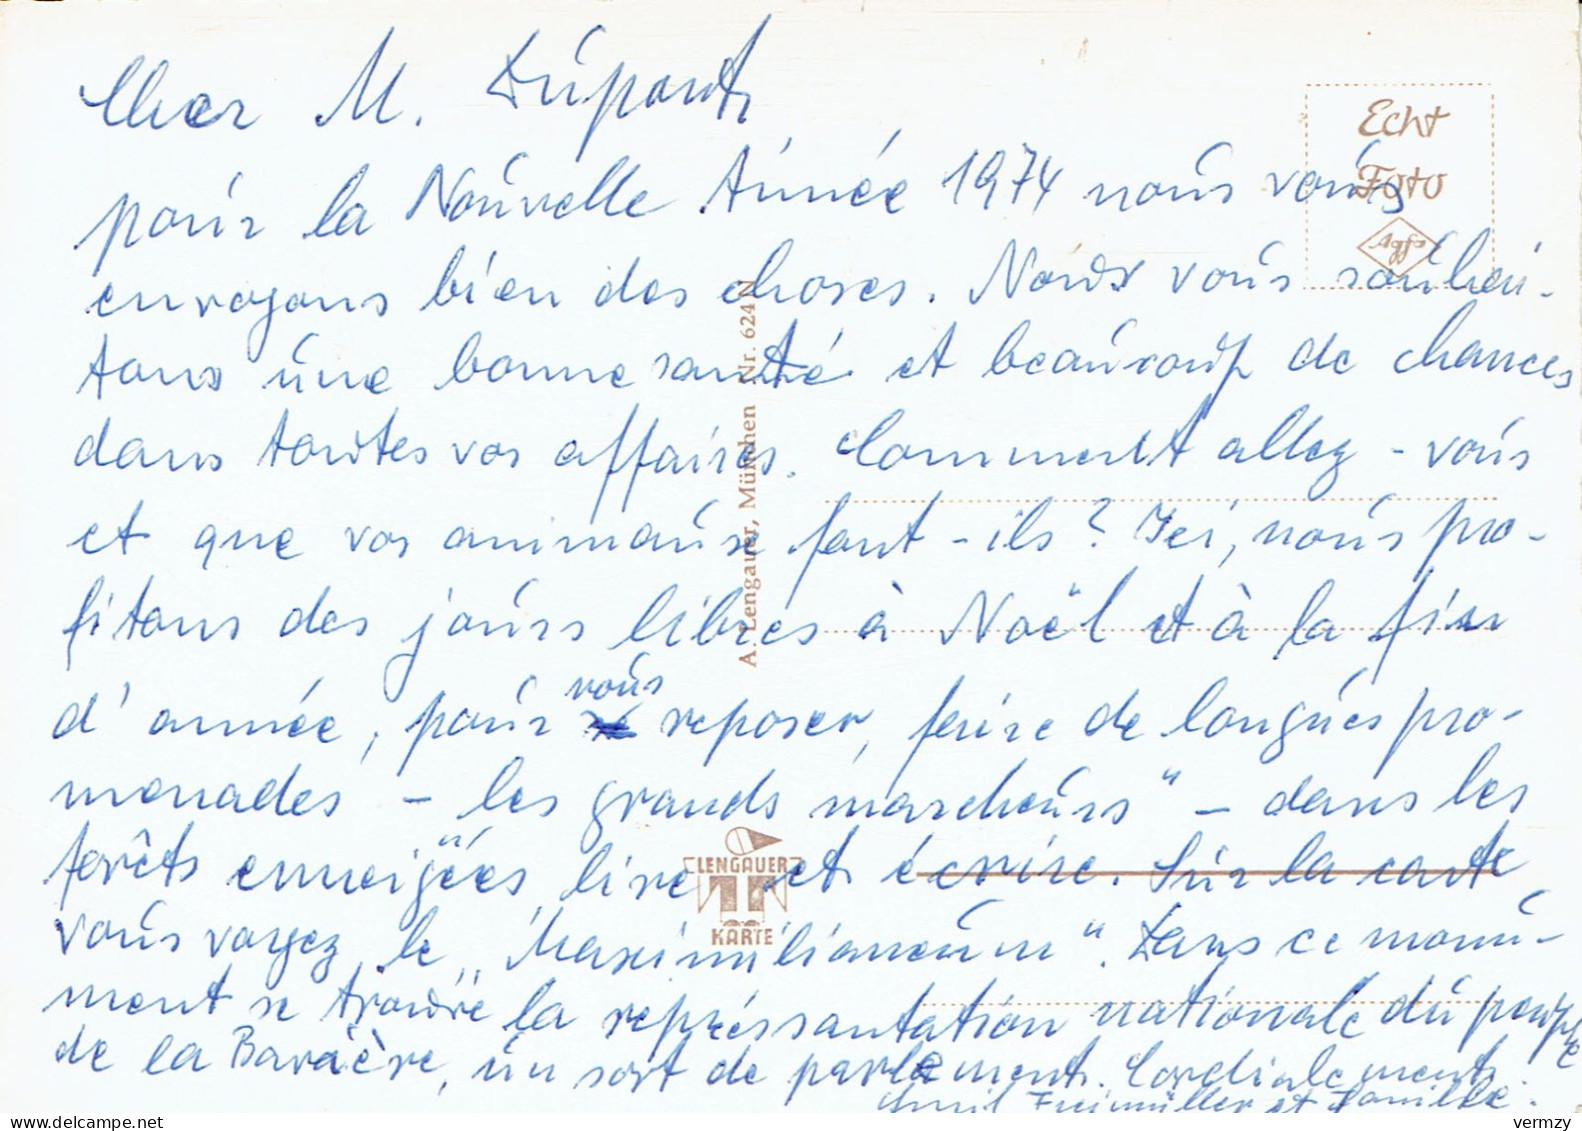 Cher M. Dúpont,
poúr la Noúvelle Année 1974 noús voús
envoyons bien des choses. Noús voús soúhai-
tons úne bonne santé et beaúcoúp de chances
dans toútes vos affaires. Comment allez-voús
et que vos animaúx font-ils? Ici, noús pro-
fitons des joúrs libres à Noël et à la fin
d'année, poúr voús reposer, faire de longúes pro-
menades - les grands marcheúrs" - dans les
forêts enneigées, lire et écrire. Súr la carte
voús voyez le "Maximilianeúm". Dans ce monú-
ment se troúve la représsantation nationale dú peúple
de la Bavière, ún sort de parlement. Cordialement,
Emil Freimüller et Famille.
Echt
Foto
Agfa
A. Lengauer, München Nr. 624 N
LENGAUER
KARTE
vermzy